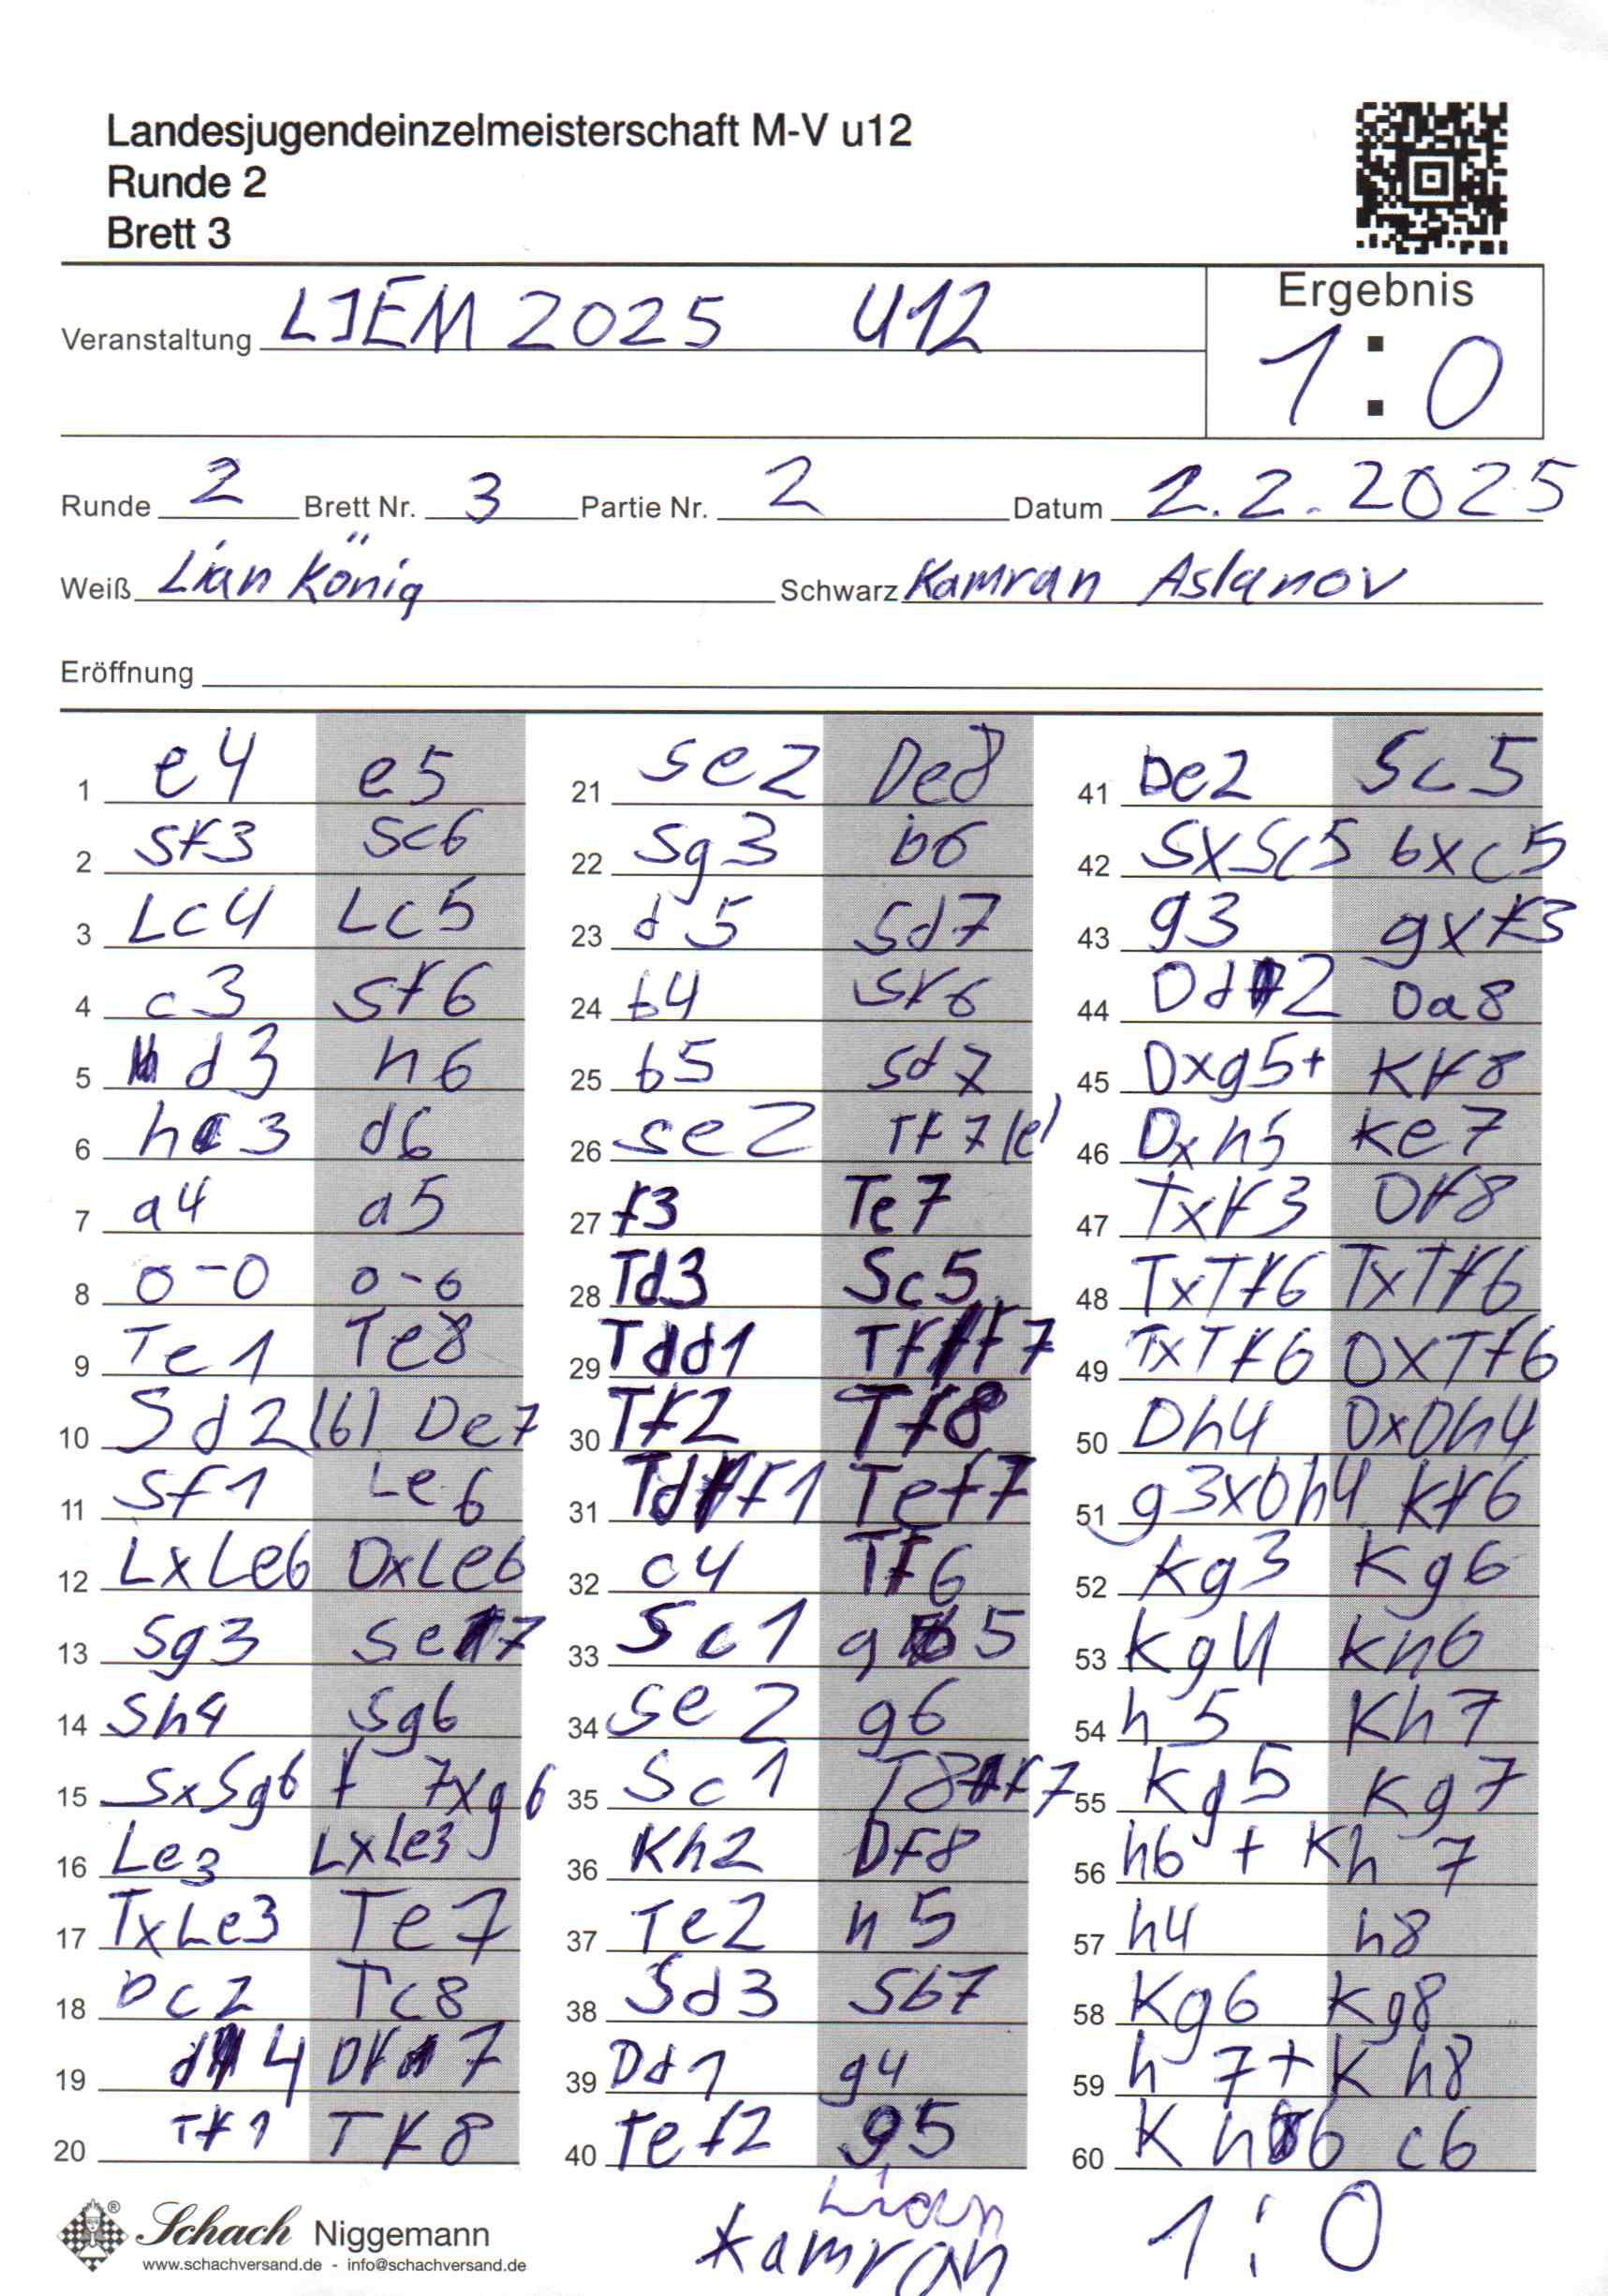 Landesjugendeinzelmeisterschaft M-V u12
Runde 2
Brett 3
Ergebnis
Veranstaltung LJEM 2025 U12
1:0
Runde 2 Brett Nr. 3 Partie Nr. 2 Datum 2.2.2025
Weiß Lian König Schwarz Kamran Aslanov
Eröffnung
1 e4 e5
2 Sf3 Sc6
3 Lc4 Lc5
4 c3 Sf6
5 d3 h6
6 h3 d6
7 a4 a5
8 0-0 0-0
9 Te1 Te8
10 Sd2(b) De7
11 Sf1 Le6
12 LxLe6 DxLe6
13 Sg3 Se7
14 Sh4 Sg6
15 SxSg6 f7xg6
16 Le3 LxLe3
17 TxLe3 Te7
18 Dc2 Tc8
19 d4 Df7
20 Tf1 Tf8
21 Se2 De8
22 Sg3 b6
23 d5 Sd7
24 b4 Sf6
25 b5 Sd7
26 Se2 Tf7(e)
27 f3 Te7
28 Td3 Sc5
29 Tdd1 Tff7
30 Tf2 Tf8
31 Tdf1 Tef7
32 c4 Tf6
33 Sc1 g5
34 Se2 g6
35 Sc1 T8f7
36 Kh2 Df8
37 Te2 h5
38 Sd3 Sb7
39 Dd1 g4
40 Tef2 g5
41 De2 Sc5
42 SxSc5 bxc5
43 g3 gxf3
44 Dd2 Da8
45 Dxg5+ Kf8
46 Dxh5 Ke7
47 Txf3 Df8
48 TxTf6 TxTf6
49 TxTf6 DxTf6
50 Dh4 DxDh4
51 g3xDh4 Kf6
52 Kg3 Kg6
53 Kg4 Kh6
54 h5 Kh7
55 Kg5 Kg7
56 h6+ Kh7
57 h4 h8
58 Kg6 Kg8
59 h7+ Kh8
60 Kh6 c6
Schach Niggemann
www.schachversand.de - info@schachversand.de
Lian
Kamran
1:0